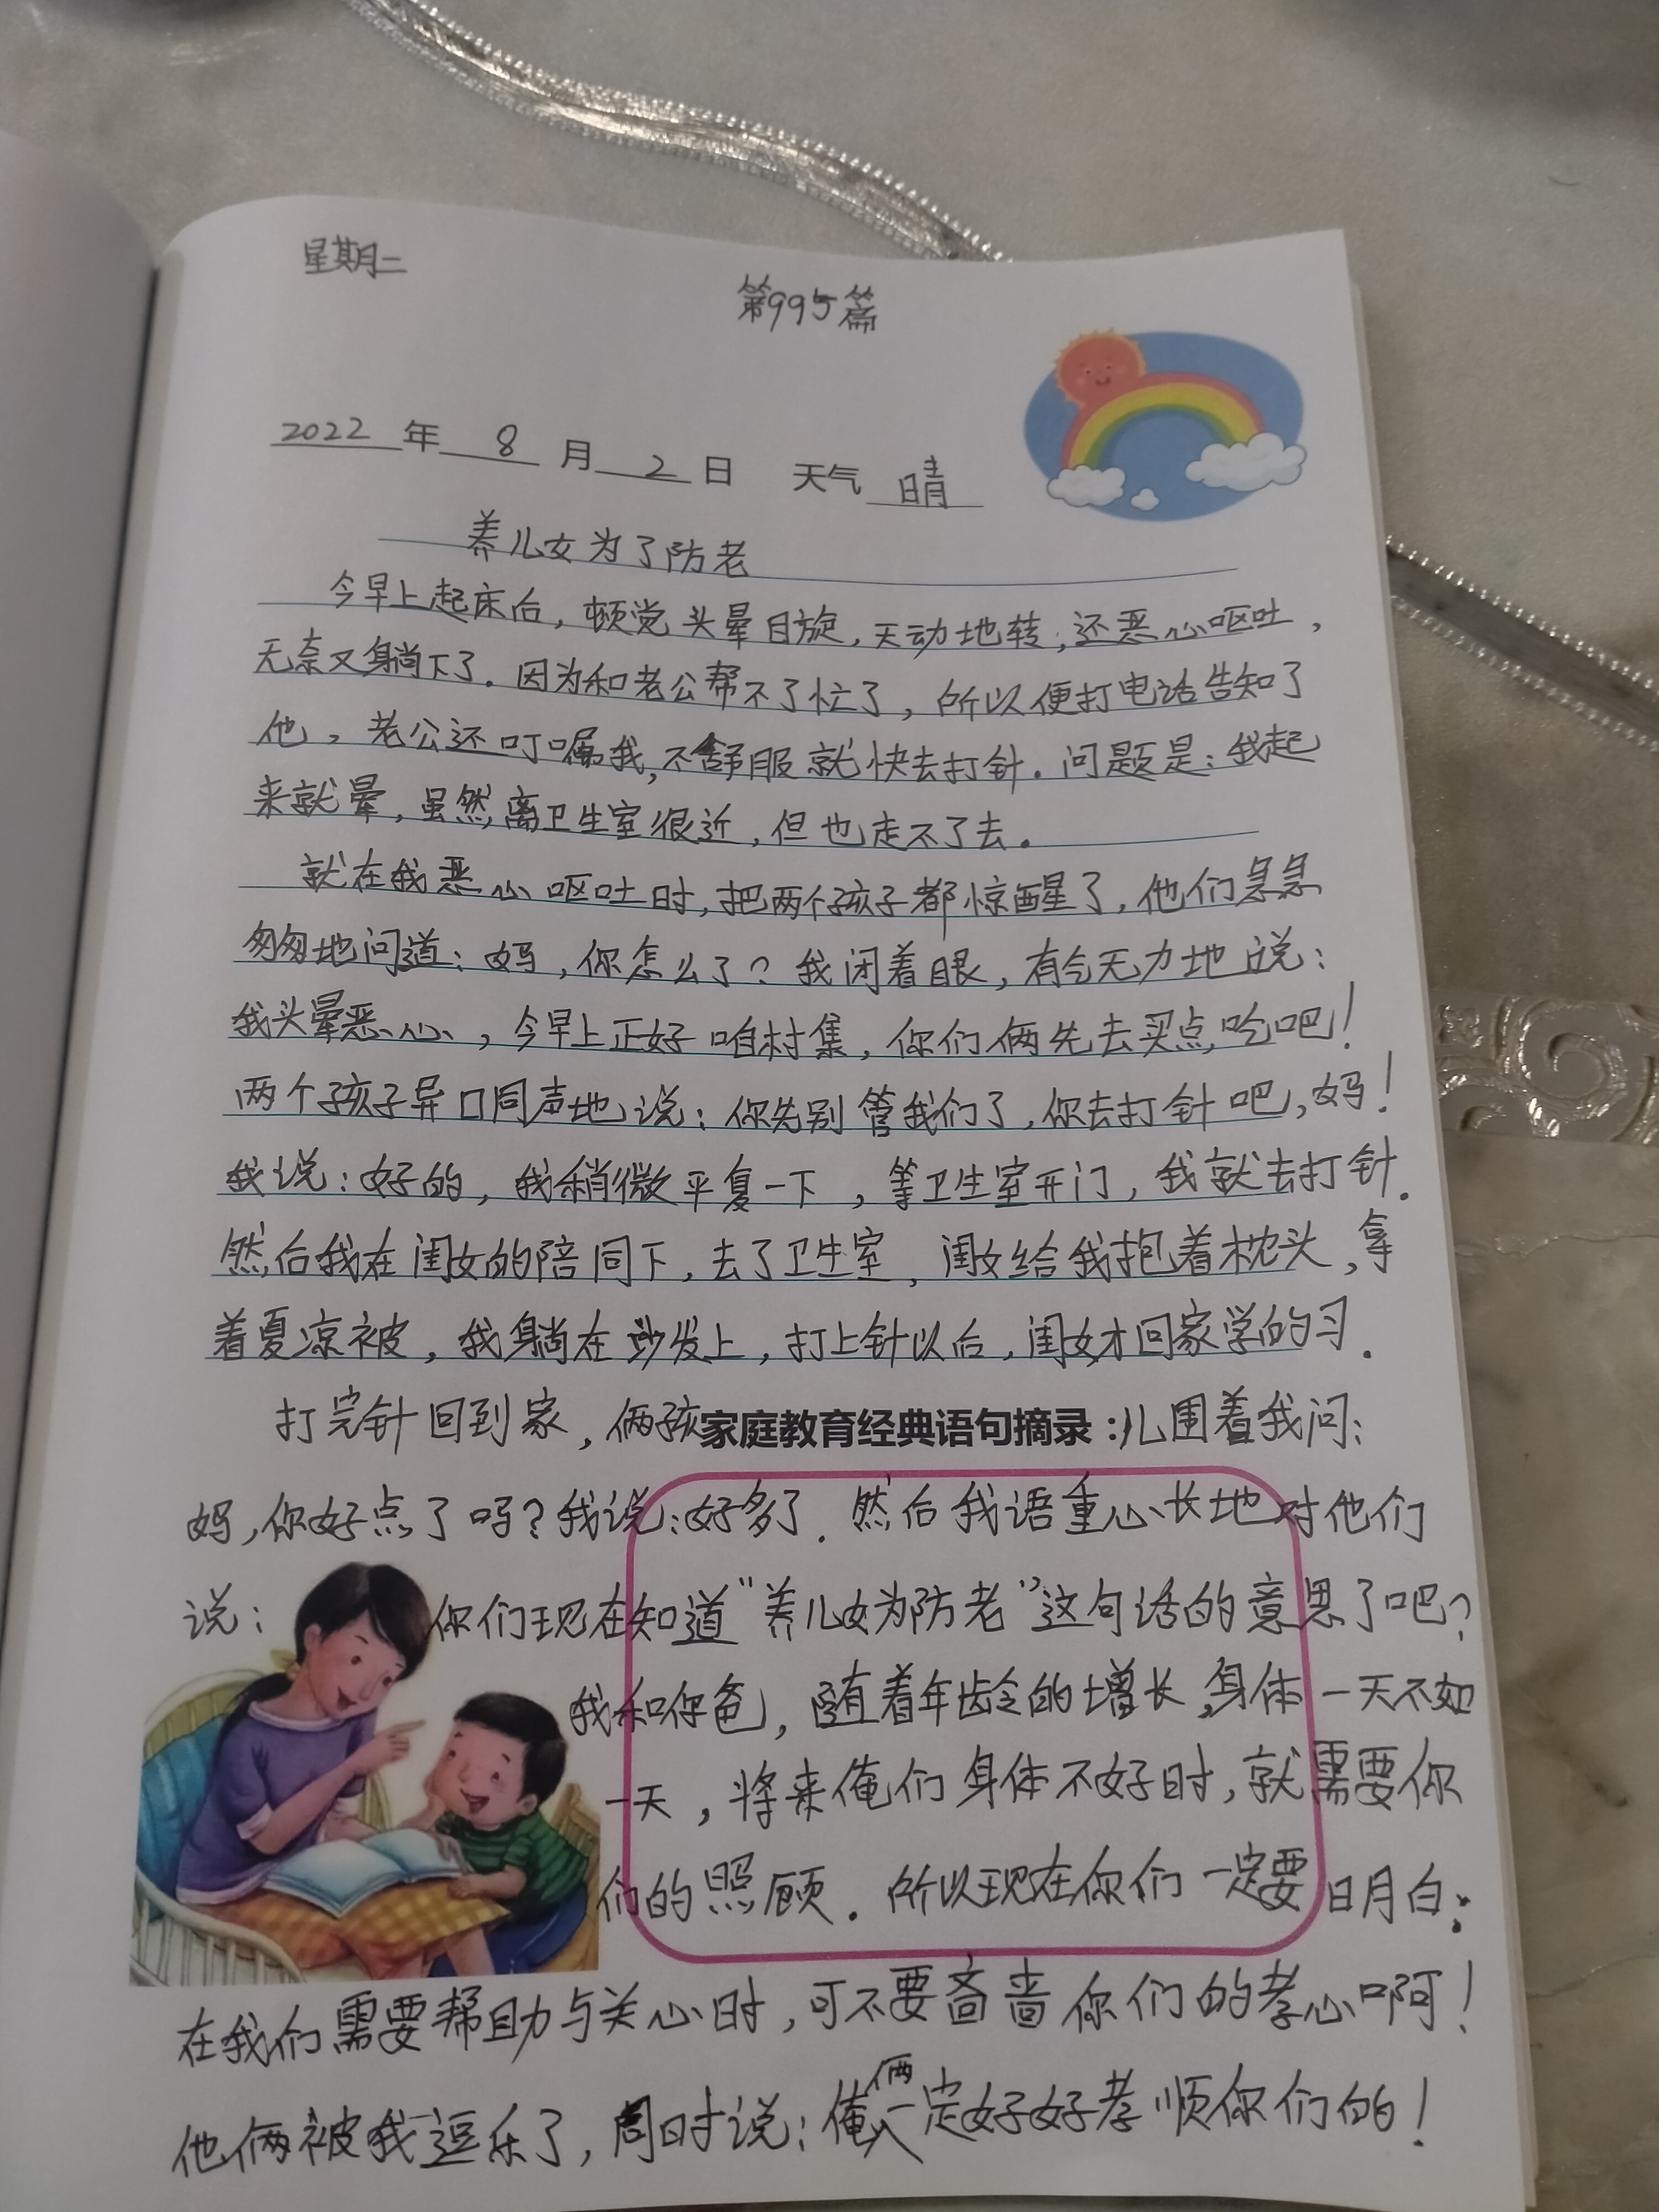 星期二
第995篇
2022年8月2日 天气 晴
养儿女为了防老
今早上起床后，顿觉头晕目旋，天动地转，还恶心呕吐，
无奈又躺下了。因为和老公帮不了忙了，所以便打电话告知了
他，老公还叮嘱我，不舒服就快去打针。问题是：我起
来就晕，虽然离卫生室很近，但也走不了去。
就在我恶心呕吐时，把两个孩子都惊醒了，他们急急
匆匆地问道：妈，你怎么了？我闭着眼，有气无力地说：
我头晕恶心，今早上正好咱村集，你们俩先去买点吃吧！
两个孩子异口同声地说：你先别管我们了，你去打针吧，妈！
我说：好的，我稍微平复一下，等卫生室开门，我就去打针。
然后我在闺女的陪同下，去了卫生室，闺女给我抱着枕头，拿
着夏凉被，我躺在沙发上，打上针以后，闺女才回家学的习。
打完针回到家，俩孩家庭教育经典语句摘录：儿围着我问：
妈，你好点了吗？我说：好多了。然后我语重心长地对他们
说：你们现在知道“养儿女为防老”这句话的意思了吧？
我和你爸，随着年龄的增长，身体一天不如
一天，将来俺们身体不好时，就需要你
们的照顾。所以现在你们一定要明白：
在我们需要帮助与关心时，可不要吝啬你们的孝心啊！
他俩被我逗乐了，同时说：俺俩一定好好孝顺你们的！